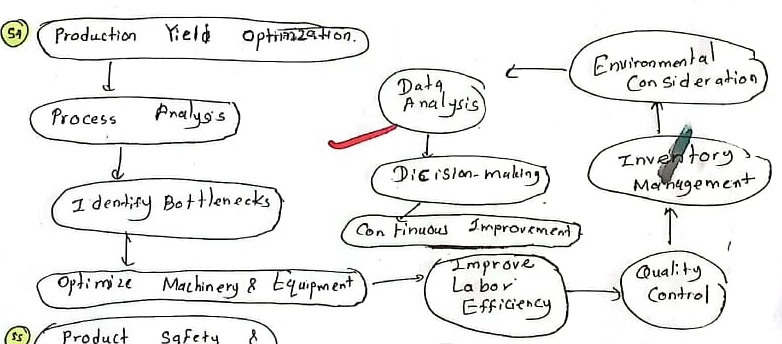 54
Production Yield Optimization.
Process Analysis
Identify Bottlenecks
Optimize Machinery & Equipment
Improve
Labor
Efficiency
Quality
Control
Inventory
Management
Environmental
Consideration
Data
Analysis
Dicision-making
Continuous Improvement
55
Product Safety &